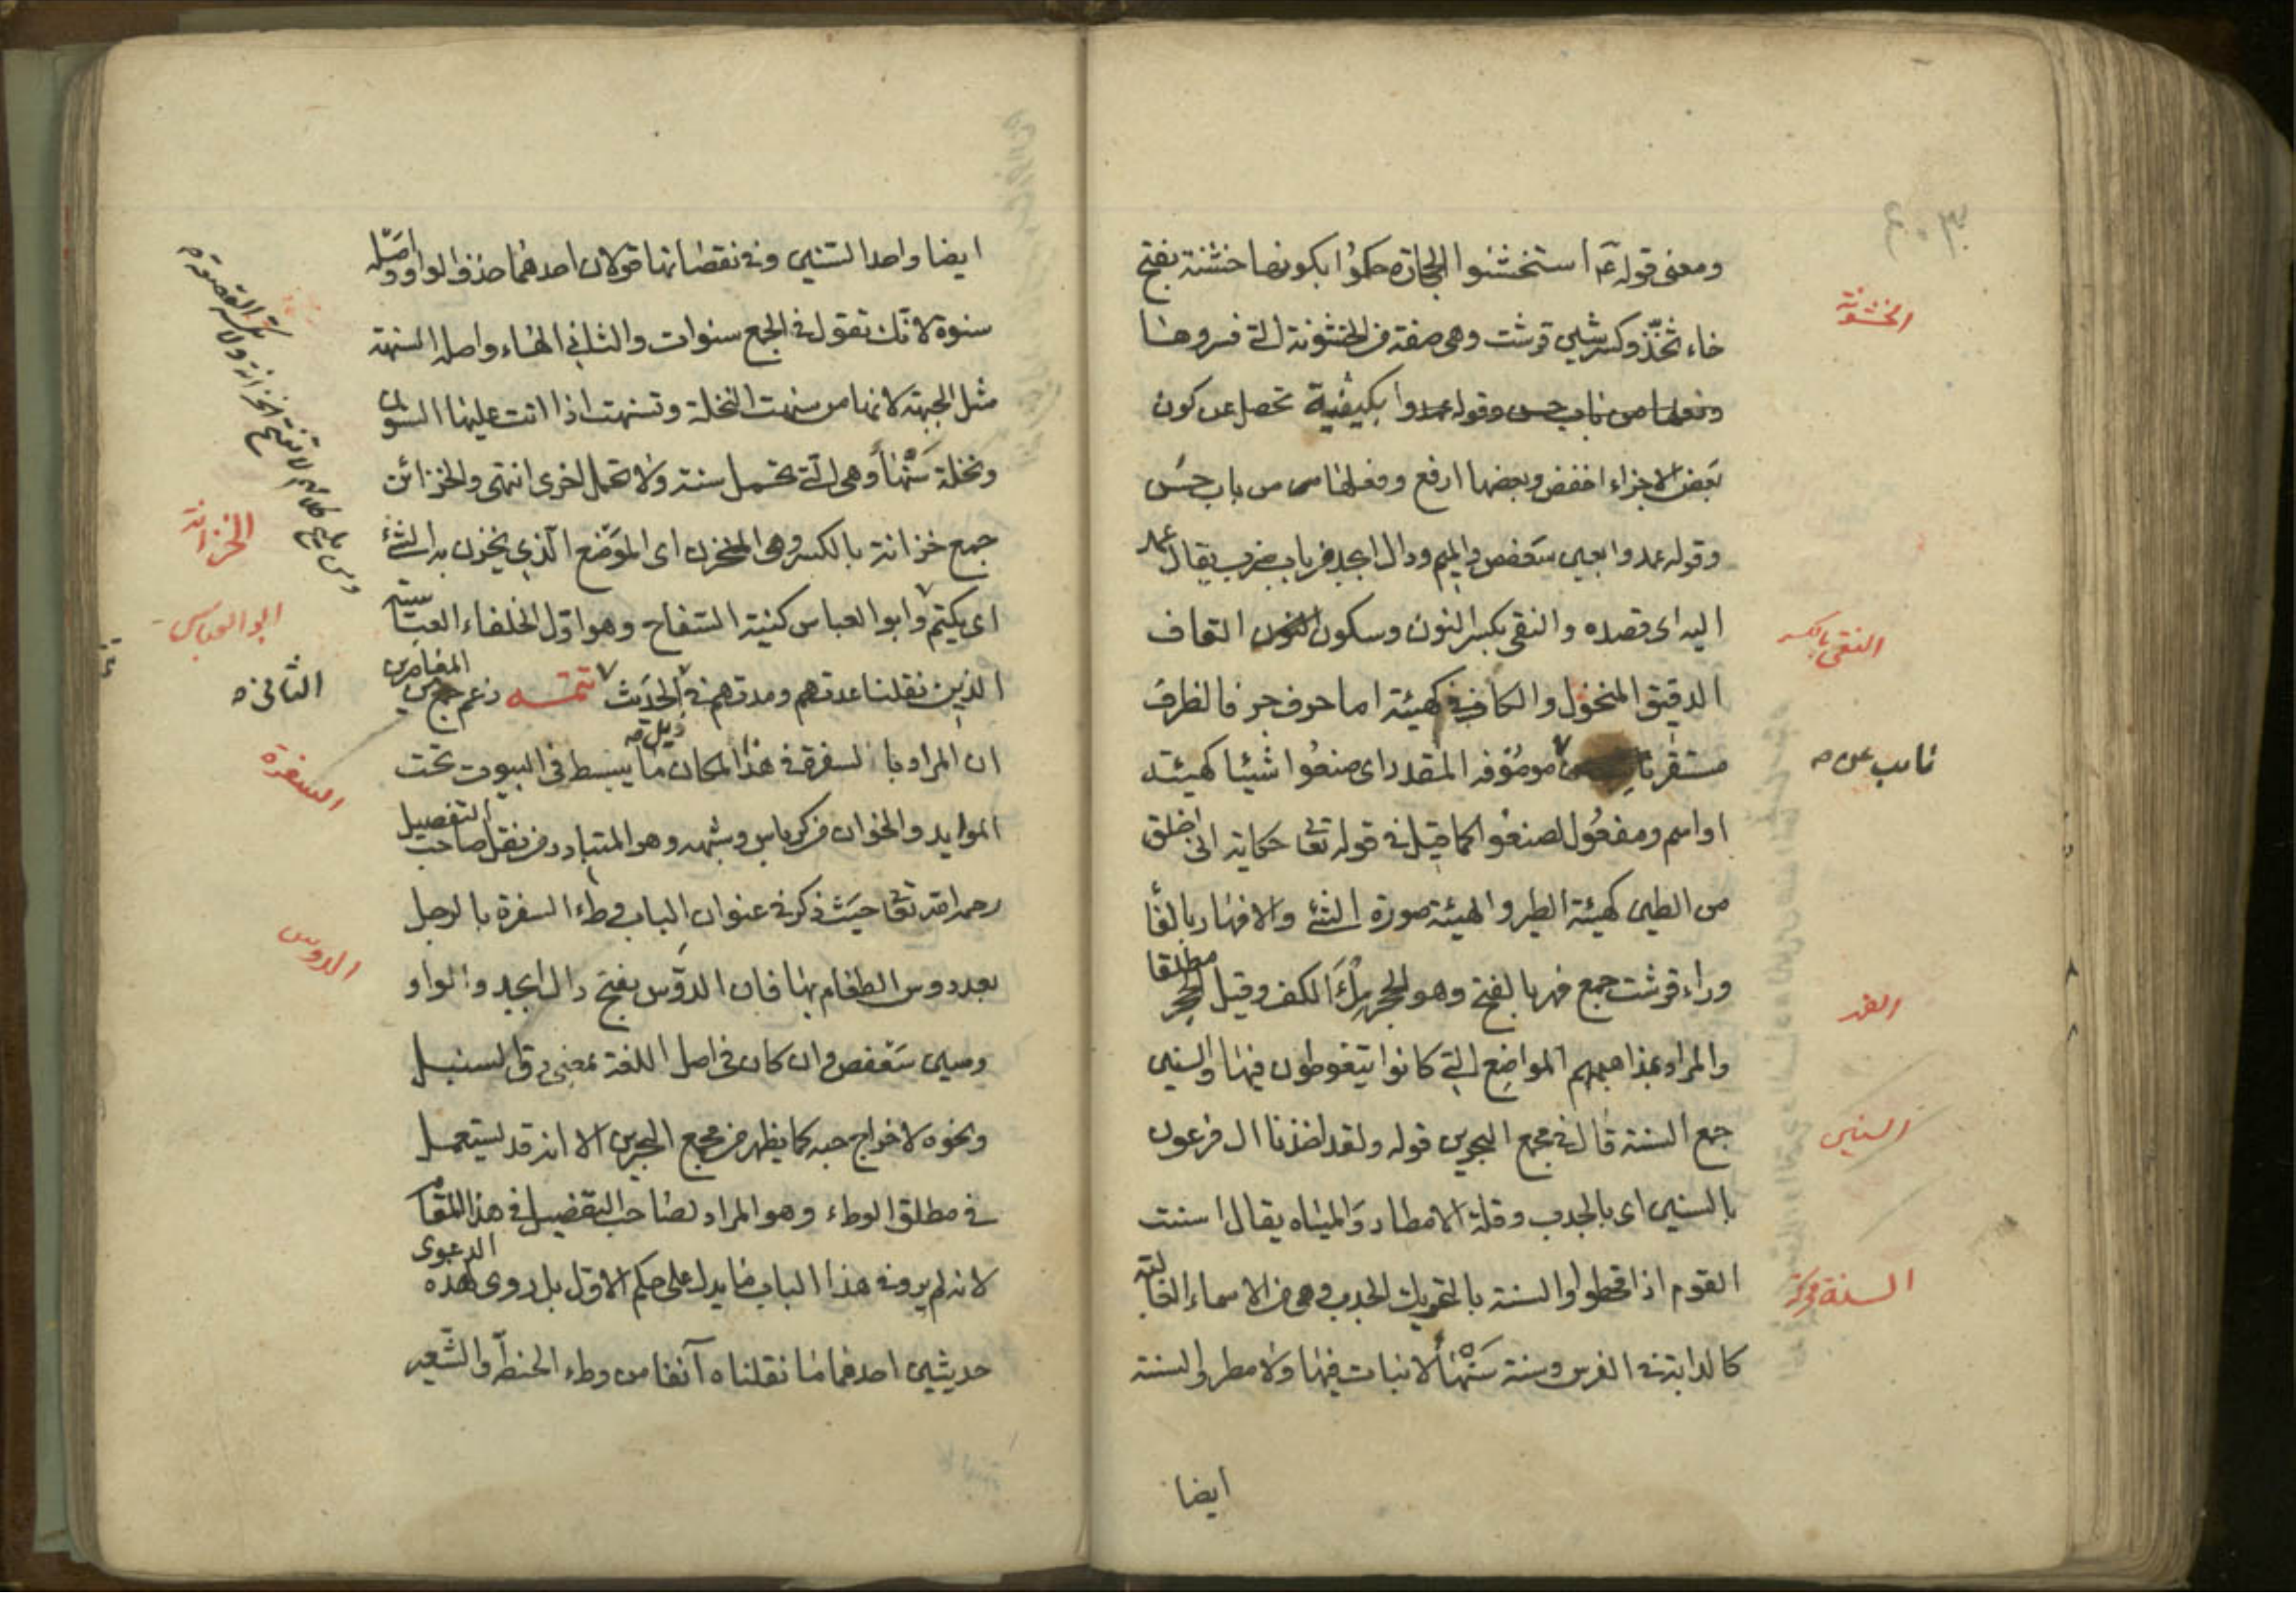 ومعنى قوله ع استخشنوا الحجارة حكموا بكونها خشنة بفتح
خاء ثخذ وكسر شين قرشت وهي صفة من الخشونة التي فسروها
وفعلها من باب حسن وقوله عمدوا بكيفية تحصل عن كون
بعض الاجزاء اخفض وبعضها ارفع وفعلها من باب حسن
وقوله عمدوا بعين سعفص والميم ودال ابجد من باب ضرب يقال عمد
اليه اى قصده والنقى بكسر النون وسكون القاف
الدقيق المنخول والكاف في كهيئة اما حرف جر فالظرف
مستقر موصوفه المقدر اى صنعوا شيئا كهيئة
او اسم ومفعول لصنعوا كما قيل في قوله تعا حكاية انى اخلق
من الطين كهيئة الطير والهيئة صورة الشئ والافهار بالفا
وراء قرشت جمع فهر بالفتح وهو الحجر ملأ الكف وقيل الحجر مطلقا
والمراد بمذاهبهم المواضع التي كانوا يتغوطون فيها والسنين
جمع السنة قال في مجمع البحرين قوله ولقد اخذنا ال فرعون
بالسنين اى بالجدب وقلة الامطار والمياه يقال اسنت
القوم اذا قحطوا والسنة بالتحريك الجدب وهى من الاسماء الغالبة
كالدابة في الفرس وسنة سنهأ لا نبات فيها ولا مطر والسنة
ايضا
الخشونة
النقى بالكسر
نايب عن صه
الفهر
السنين
السنة محركة
ايضا واحد السنين وفي نقصانها قولان احدهما حذف الواو واصله
سنوة لانك تقول في الجمع سنوات والثاني الهاء واصله السنهة
مثل الجبهة لانها من سنهت النخلة وتسنهت اذا اتت عليها السنون
ونخلة سنهأ وهى التي تحمل سنة ولا تحمل اخرى انتهى والخزائن
جمع خزانة بالكسر وهى المخزن اى الموضع الذي يخزن به الشئ
اى يكتم وابو العباس كنية السفاح وهو اول الخلفاء العباسية
الذين نقلنا عدتهم ومدتهم في ذيل الحديث تتمه زعم جمع من المعاصرين
ان المراد بالسفرة في هذا المكان ما يبسط في البيوت تحت
الموايد والخوان من كرباس وشبهه وهو المتبادر من نقل صاحب التفصيل
رحمه الله تعا حيث ذكر في عنوان الباب وطء السفرة بالرجل
بعد دوس الطعام بها فان الدوس بفتح دال ابجد والواو
وسين سعفص وان كان في اصل اللغة بمعنى دق السنبل
ونحوه لاخراج حبه كما يظهر من مجمع البحرين الا انه قد يستعمل
في مطلق الوطء وهو المراد لصاحب التفصيل في هذا المقام
لانه لم يرو في هذا الباب ما يدل على حكم الاول بل روى لهذه الدعوى
حديثين احدهما ما نقلناه آنفا من وطء الحنطة والشعير
الخزانة
ابو العباس
الثاني صه
السفرة
الدوس